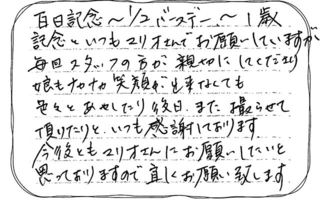 百日記念～1/2バースデー～1歳
記念といつもマリオさんでお願いしていますが
毎回スタッフの方が親切にしてくださり
娘もナカナカ笑顔が出来なくても
色々とあやしたり後日、また撮らせて
頂けたりと、いつも感謝しております
今後ともマリオさんにお願いしたいと
思っておりますので宜しくお願い致します